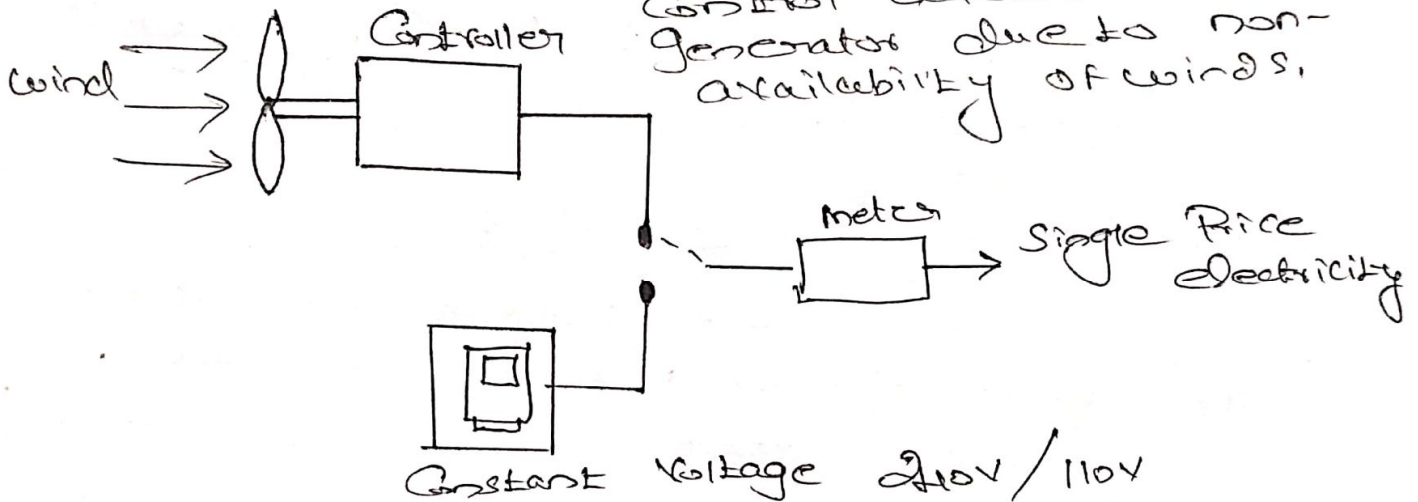 Control
generator due to non-
availability of winds.
Controller
wind
meter
Single Price
electricity
Constant Voltage 240V / 110V